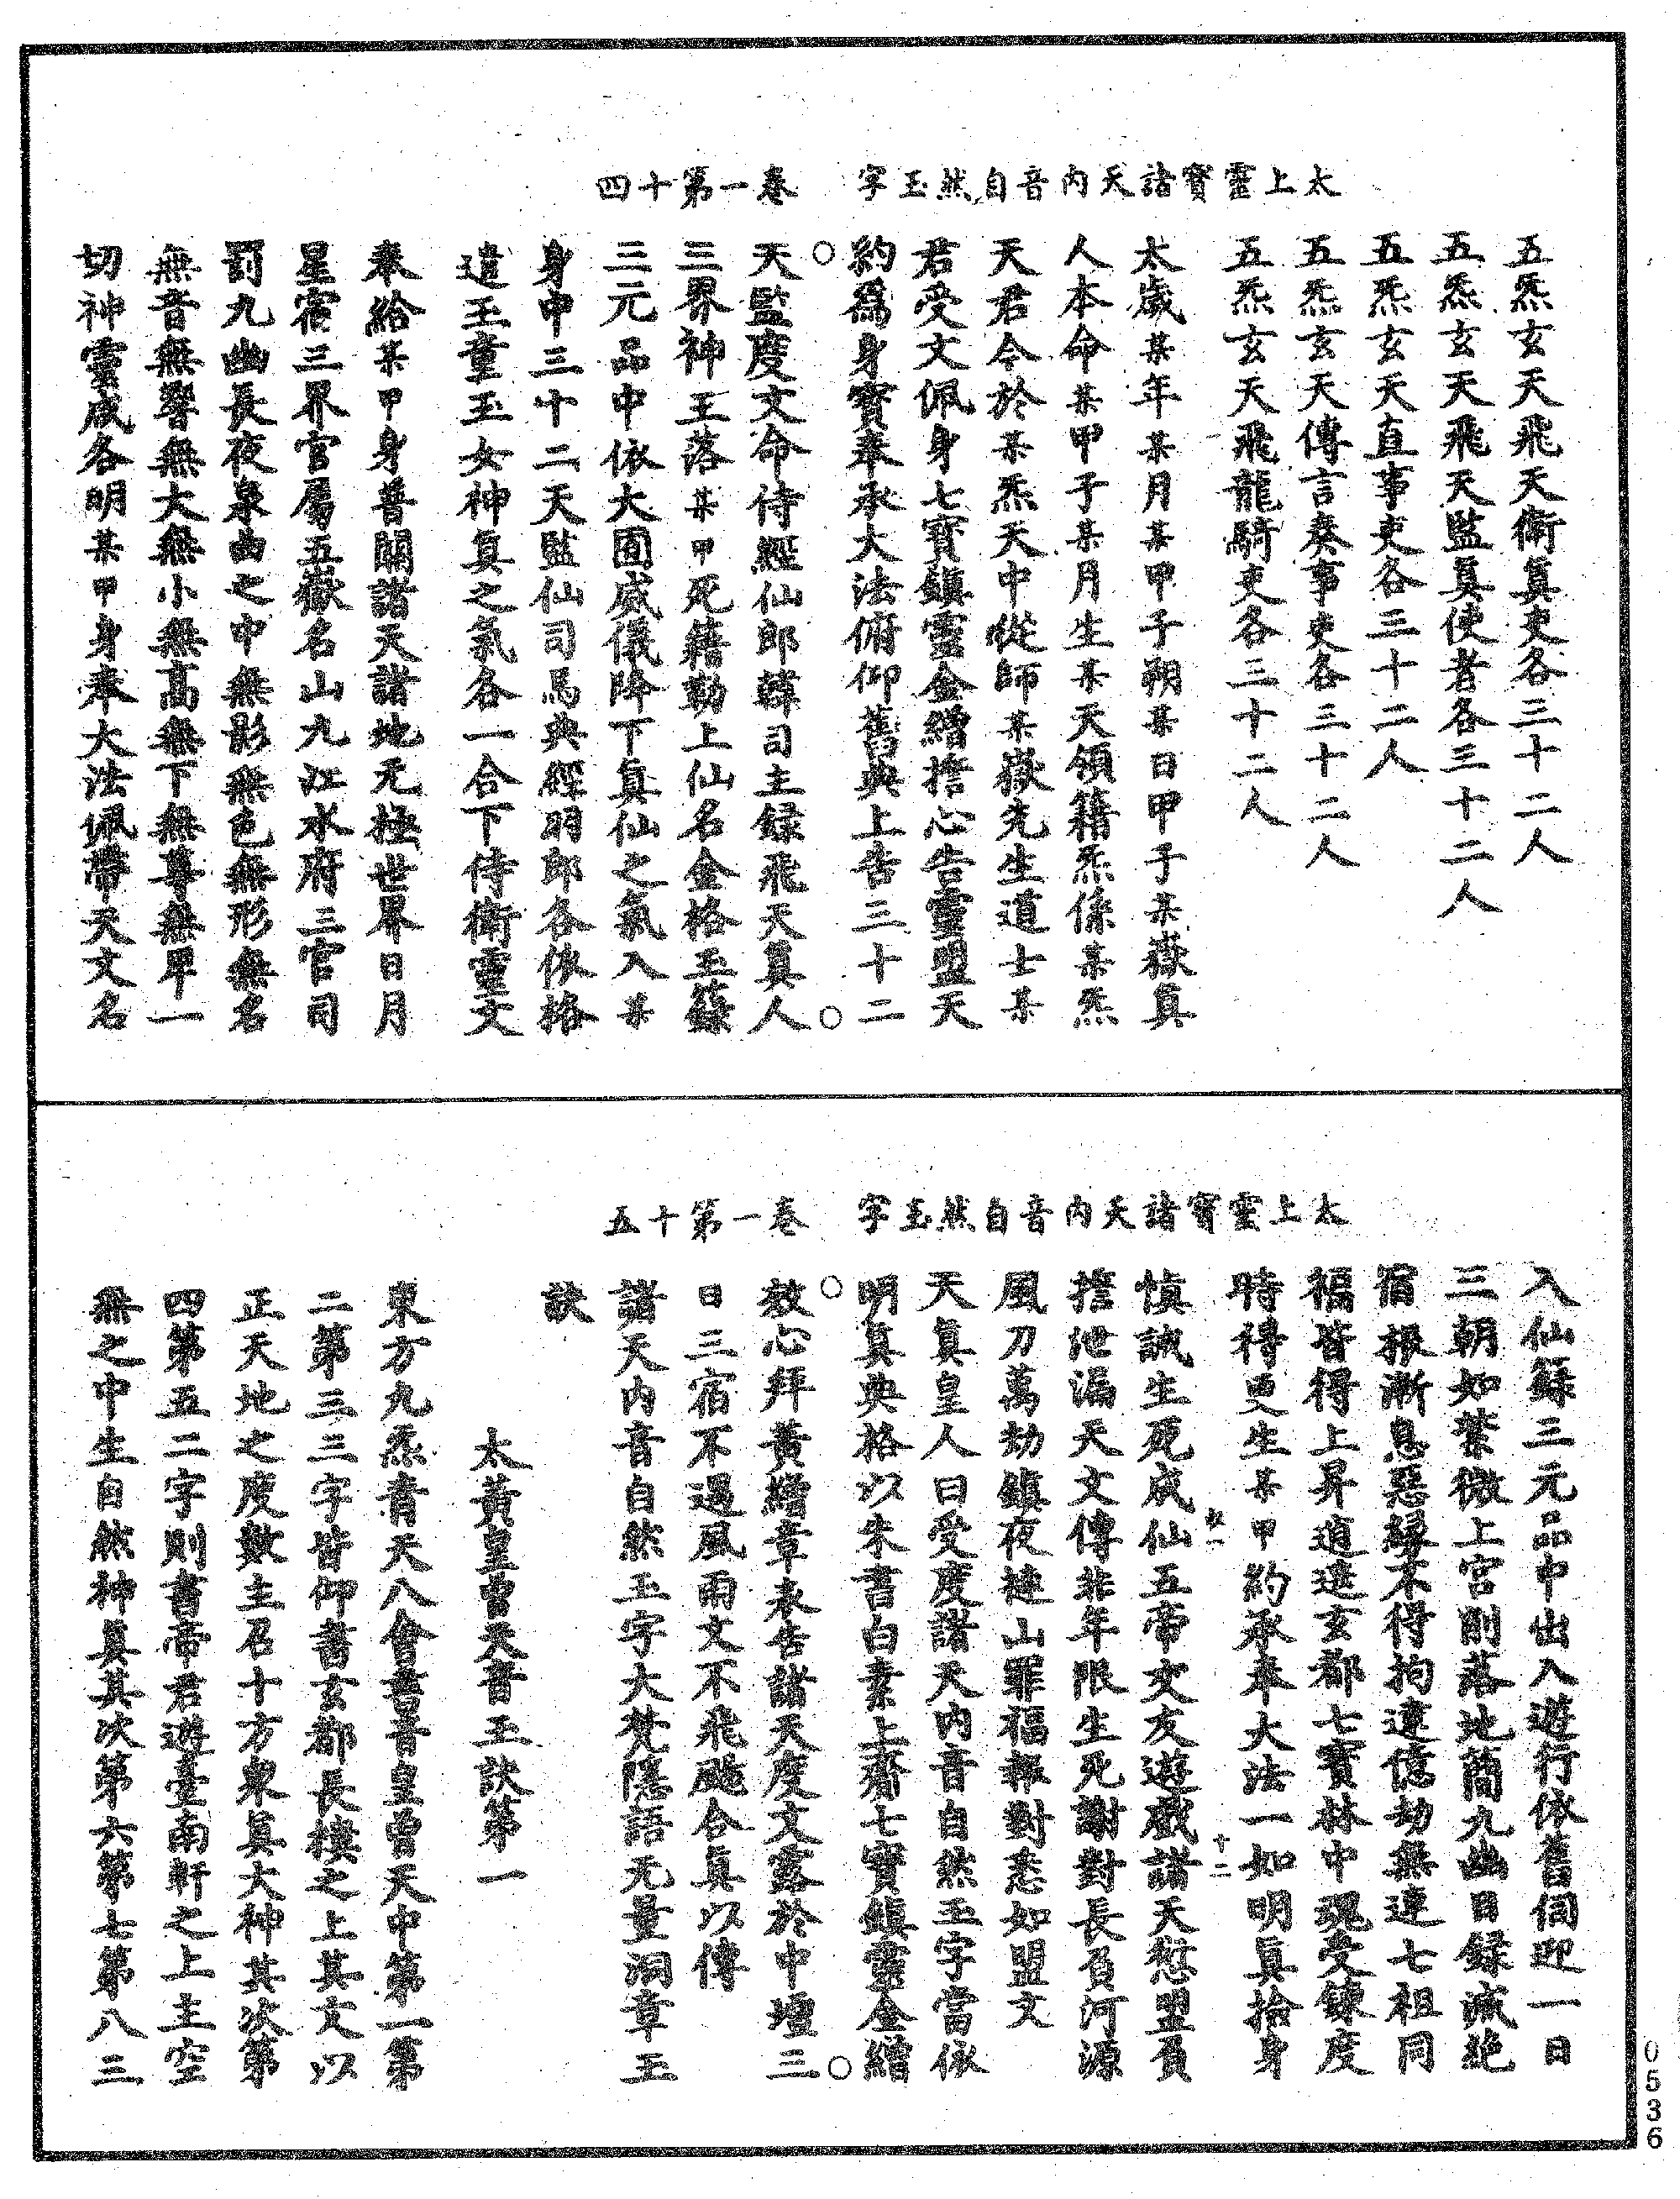 太上靈寶諸天內音自然玉字　卷一第十四
五炁玄天飛天衛真吏各三十二人
五炁玄天飛天監真使者各三十二人
五炁玄天直事吏各三十二人
五炁玄天傳言奏事吏各三十二人
五炁玄天飛龍騎吏各三十二人
太歲某年某月某甲子朔某日甲子某嶽真
人本命某甲子某月生某天領籍炁係某炁
天君今於某炁天中從師某嶽先生道士某
君受文佩身七寶鎮靈金繒擔心告靈盟天
約爲身寶奉承大法俯仰舊典上告三十二
天監度文命侍經仙郎韓司主錄飛天真人
三界神王落某甲死籍勒上仙名金格玉籙
三元品中依大囿威儀降下真仙之氣入某
身中三十二天監仙司馬典經羽郎各依格
遣玉童玉女神真之氣各一合下侍衛靈文
奉給某甲身普關諸天諸地无極世界日月
星宿三界官屬五嶽名山九江水府三官司
罰九幽長夜泉曲之中無影無色無形無名
無音無響無大無小無高無下無尊無卑一
切神靈咸各明某甲身奉大法佩帶天文名
太上靈寶諸天內音自然玉字　卷一第十五
入仙籙三元品中出入遊行依舊伺迎一日
三朝如業微上宮則落地簡九幽目錄滅絕
宿根漸息惡緣不得拘遠億劫無連七祖同
福皆得上昇逍遙玄都七寶林中現受鍊度
時得更生某甲約承奉大法一如明真拾身
慎誡生死成仙五帝交友遊戲諸天愆盟負
擔泄漏天文傳非年限生死謝對長負河源
風刀萬劫鎮夜連山罪福報對悉如盟文
天真皇人曰受度諸天內音自然玉字當依
明真典格以朱書白素上齎七寶鎮靈金繒
效心拜黃繒章表告諸天度文露於中壇三
日三宿不遇風雨文不飛颺合真以傳
諸天內音自然玉字大梵隱語无量洞章玉
訣
太黃皇曾天音玉訣第一
東方九炁青天八會書音皇曾天中第一第
二第三三字皆仰書玄都長樓之上其文以
正天地之度數主召十方衆真大神其次第
四第五二字則書帝君遊臺南軒之上主空
無之中生自然神真其次第六第七第八三
0536